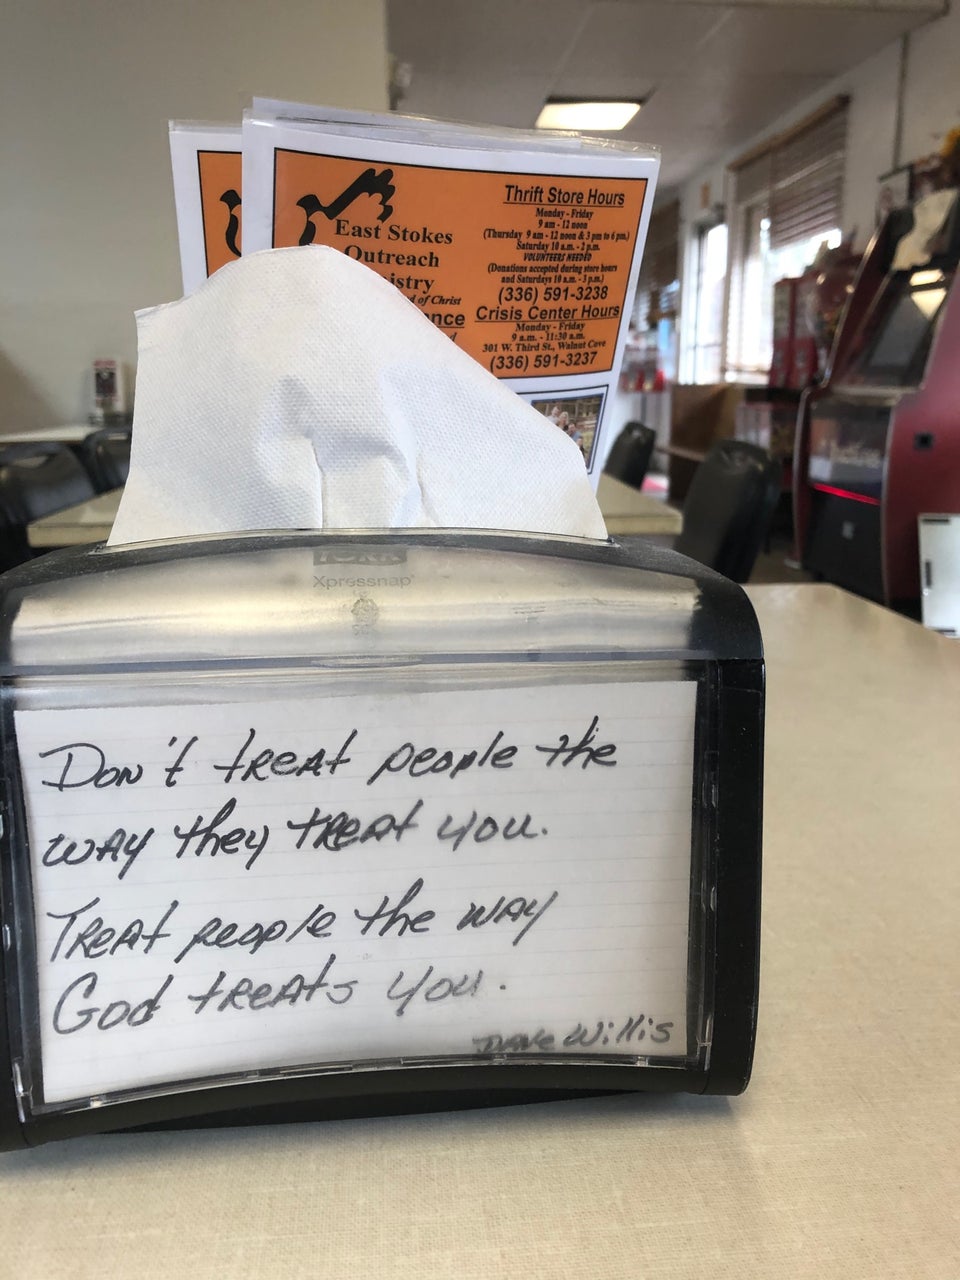 Thrift Store Hours
Monday - Friday
9 am - 12 noon
(Thursday 9 am - 12 noon & 3 pm to 6 pm)
Saturday 10 a.m. - 2 p.m.
VOLUNTEERS NEEDED
(Donations accepted during store hours
and Saturdays 10 a.m. - 3 p.m.)
(336) 591-3238
Crisis Center Hours
Monday - Friday
9 a.m. - 11:30 a.m.
301 W. Third St., Walnut Cove
(336) 591-3237
East Stokes
Outreach
istry
d of Christ
ance
Xpressnap
Don't treat people the
way they treat you.
Treat people the way
God treats you.
Dave Willis